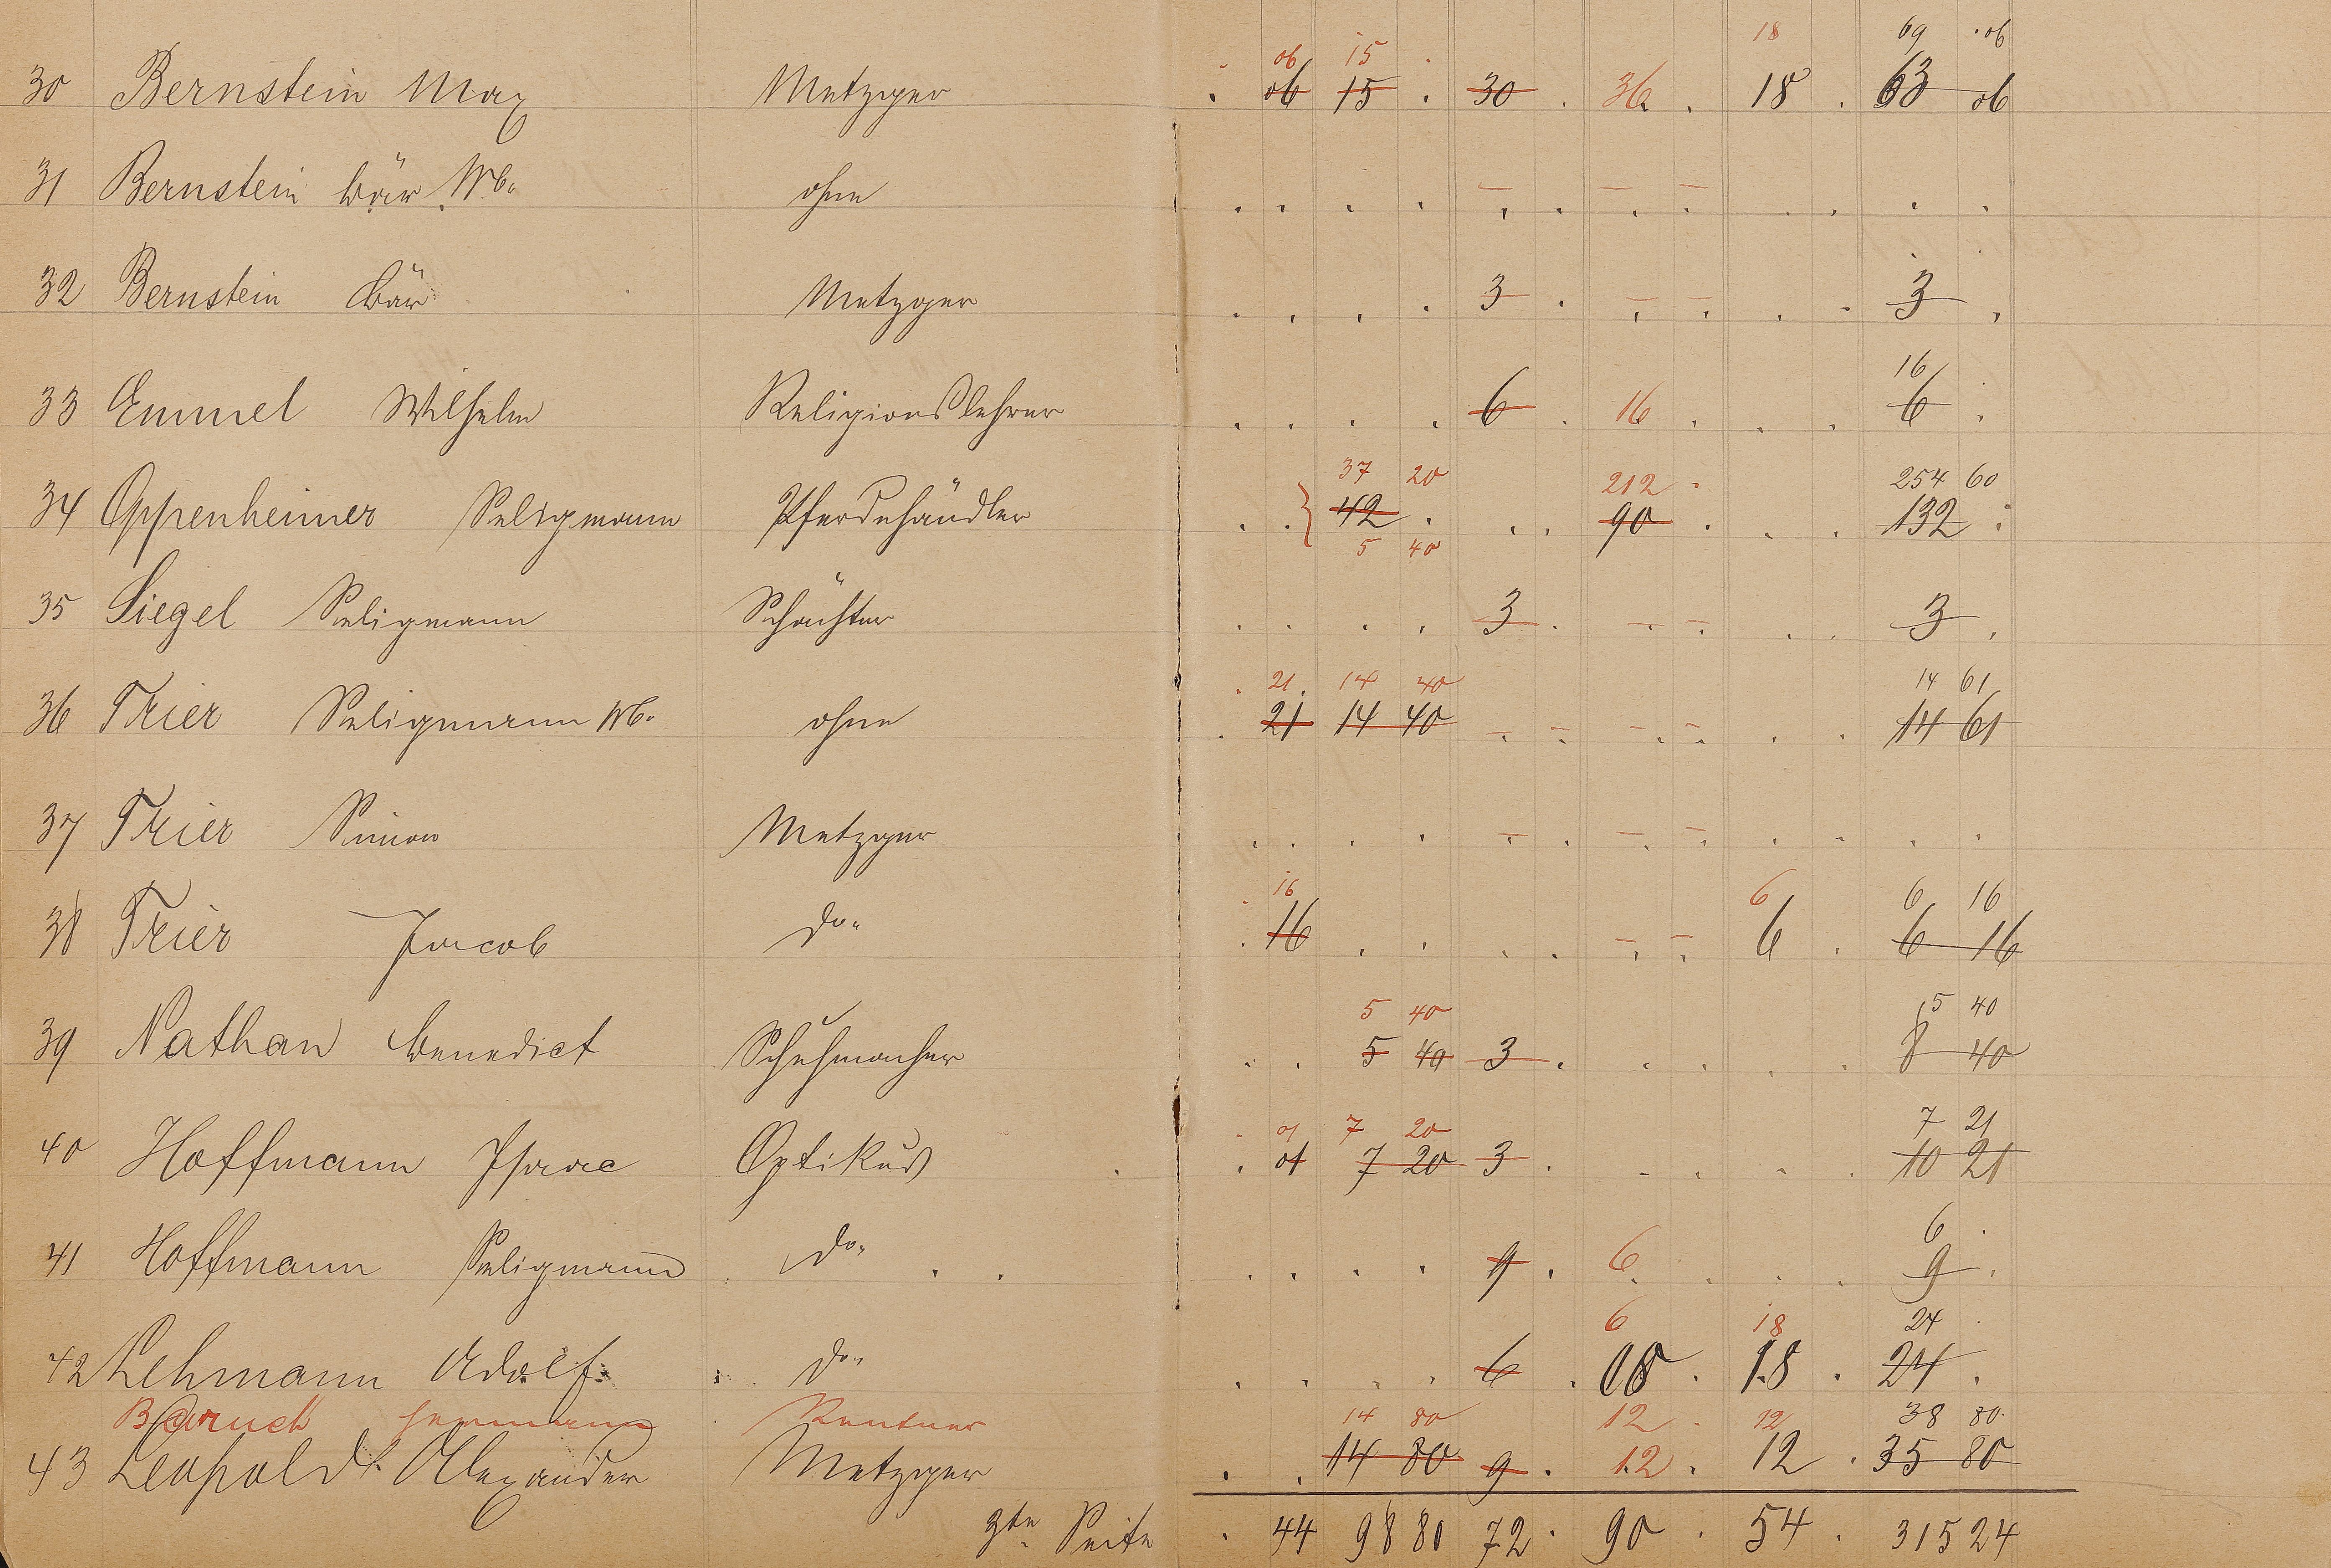 18 69 . 06
06 15 .
30 Bernstein Max Metzger . 06 15 . 30 . 36 . 18 . 63 06
31 Bernstein Bär Wb. ohne
32 Bernstein Bär Metzger . . . . 3 . . . . . 3 .
16
33 Emmel Wilhelm Religionslehrer . . . . 6 . 16 . . . 6 .
37 20 212 . 254 60
34 Oppenheimer Seligmann Pferdehändler . . 42 . . . 90 . . . 132 .
5 40
35 Siegel Seligmann Schächter . . . . 3 . . . . . 3 .
. 21 . 14 40 14 61
36 Trier Seligmann Wb. ohne . 21 14 40 . . . . . . 14 61
37 Trier Simon Metzger
16 6 6 16
38 Trier Jacob do. . 16 . . . . . . 6 . 6 16
5 40 5 40
39 Nathan Benedict Schuhmacher . . 5 40 3 . . . . . 8 40
. 01 7 20 7 21
40 Hoffmann Isaac Optikus . 01 7 20 3 . . . . . 10 21
6 .
41 Hoffmann Seligmann do. . . . . 9 . 6 . . . 9 .
6 18 24 .
42 Lehmann Adolf do. . . . . 6 . . 18 . 24 .
Baruch Hermann Rentner 14 80 12 . 12 38 80.
43 Leopold Alexander Metzger . . 14 80 9 . 12 . 12 . 35 80
3te Seite . 44 98 80 72 . 90 . 54 . 315 24